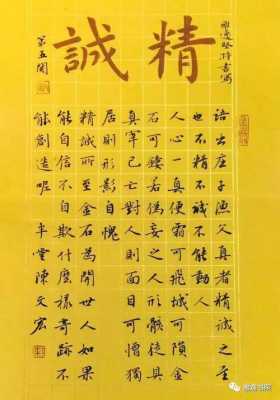 精誠
第五關
語出庄子漁父真者精诚之至
也不精不诚不能動人
人心一真便霜可飛城可隕金
石可鏤若偽妄之人形骸徒具
真宰已亡對人則面目可憎獨
居則形影自愧
精誠所至金石為開世人如果
能自信不自欺什麽樣奇跡不
能創造呢 半堂陳文宏